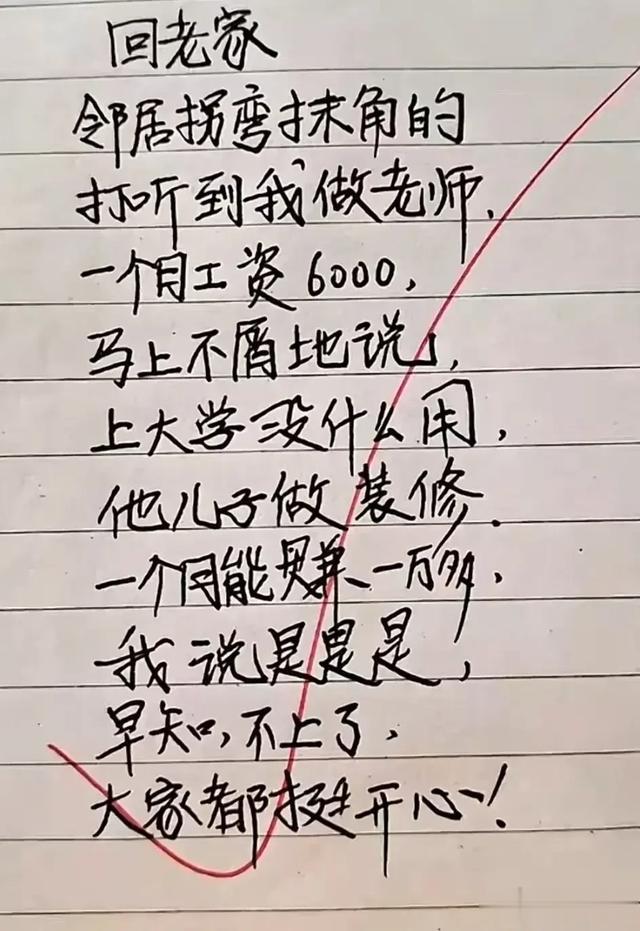 回老家
邻居拐弯抹角的
打听到我做老师，
一个月工资6000，
马上不屑地说，
上大学没什么用，
他儿子做装修，
一个月能赚一万多，
我说是是是，
早知，不上了，
大家都挺开心！